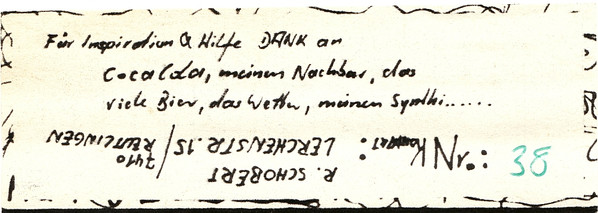 Für Inspiration & Hilfe DANK an
meinen Nachbar, das
viele Bier, das Wetter, meinen Synthi......
KONTAKT:
R. SCHOBERT
LERCHENSTR. 15 /
7410
REUTLINGEN
Nr.: 38